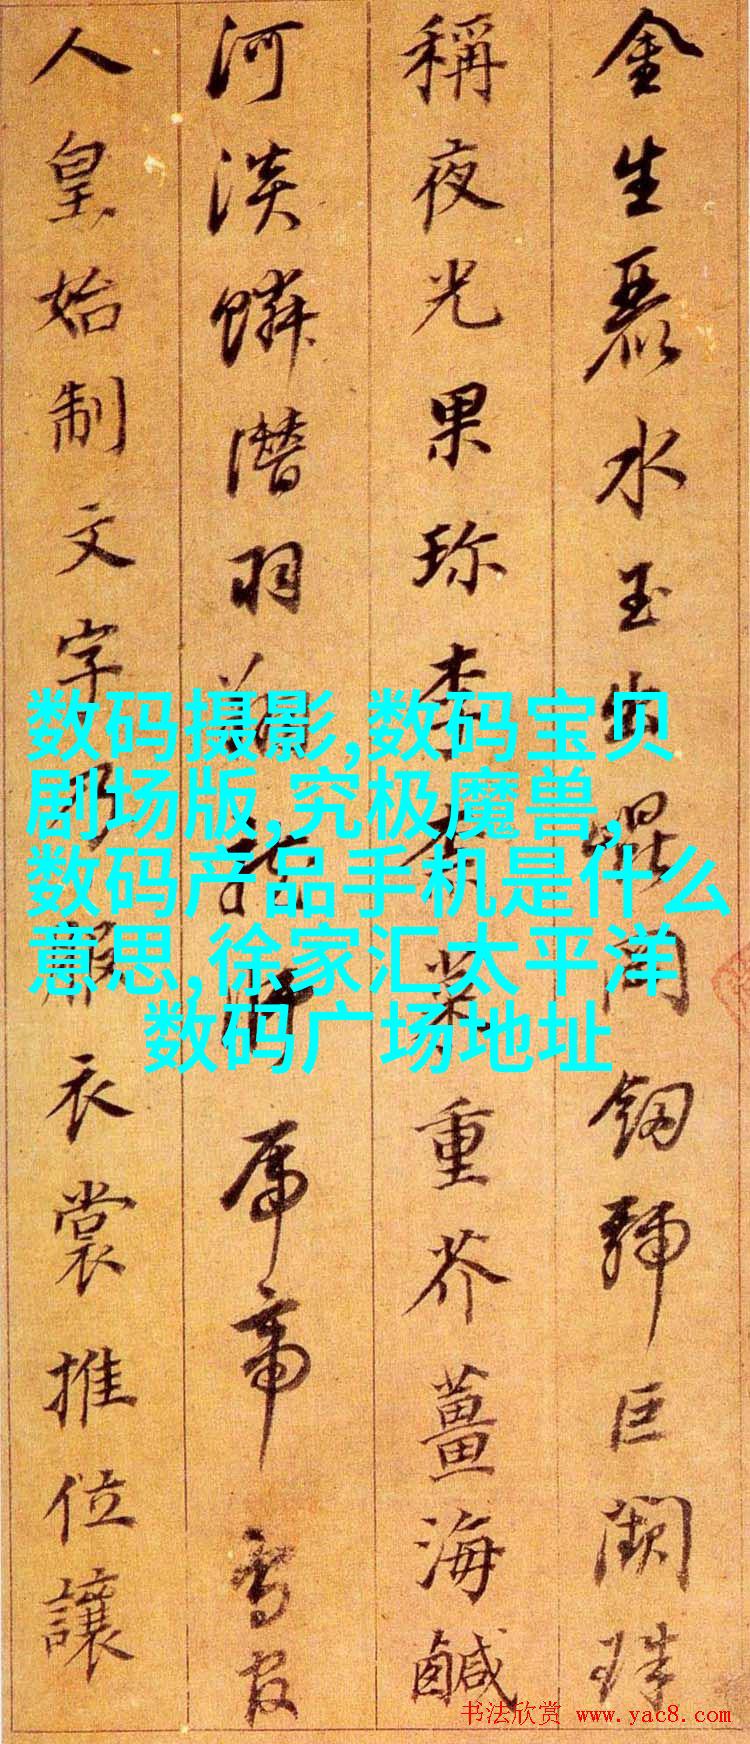 金生麗水玉出崐岡號巨闕珠
稱夜光果珍李柰菜重芥薑海鹹
河淡鱗潛羽翔龍師帝鳥官
人皇始制文字乃服衣裳推位讓
数码摄影,数码宝贝
剧场版,究极魔兽,
数码产品手机是什么
意思,徐家汇太平洋
数码广场地址
书法欣赏 www.yac8.com